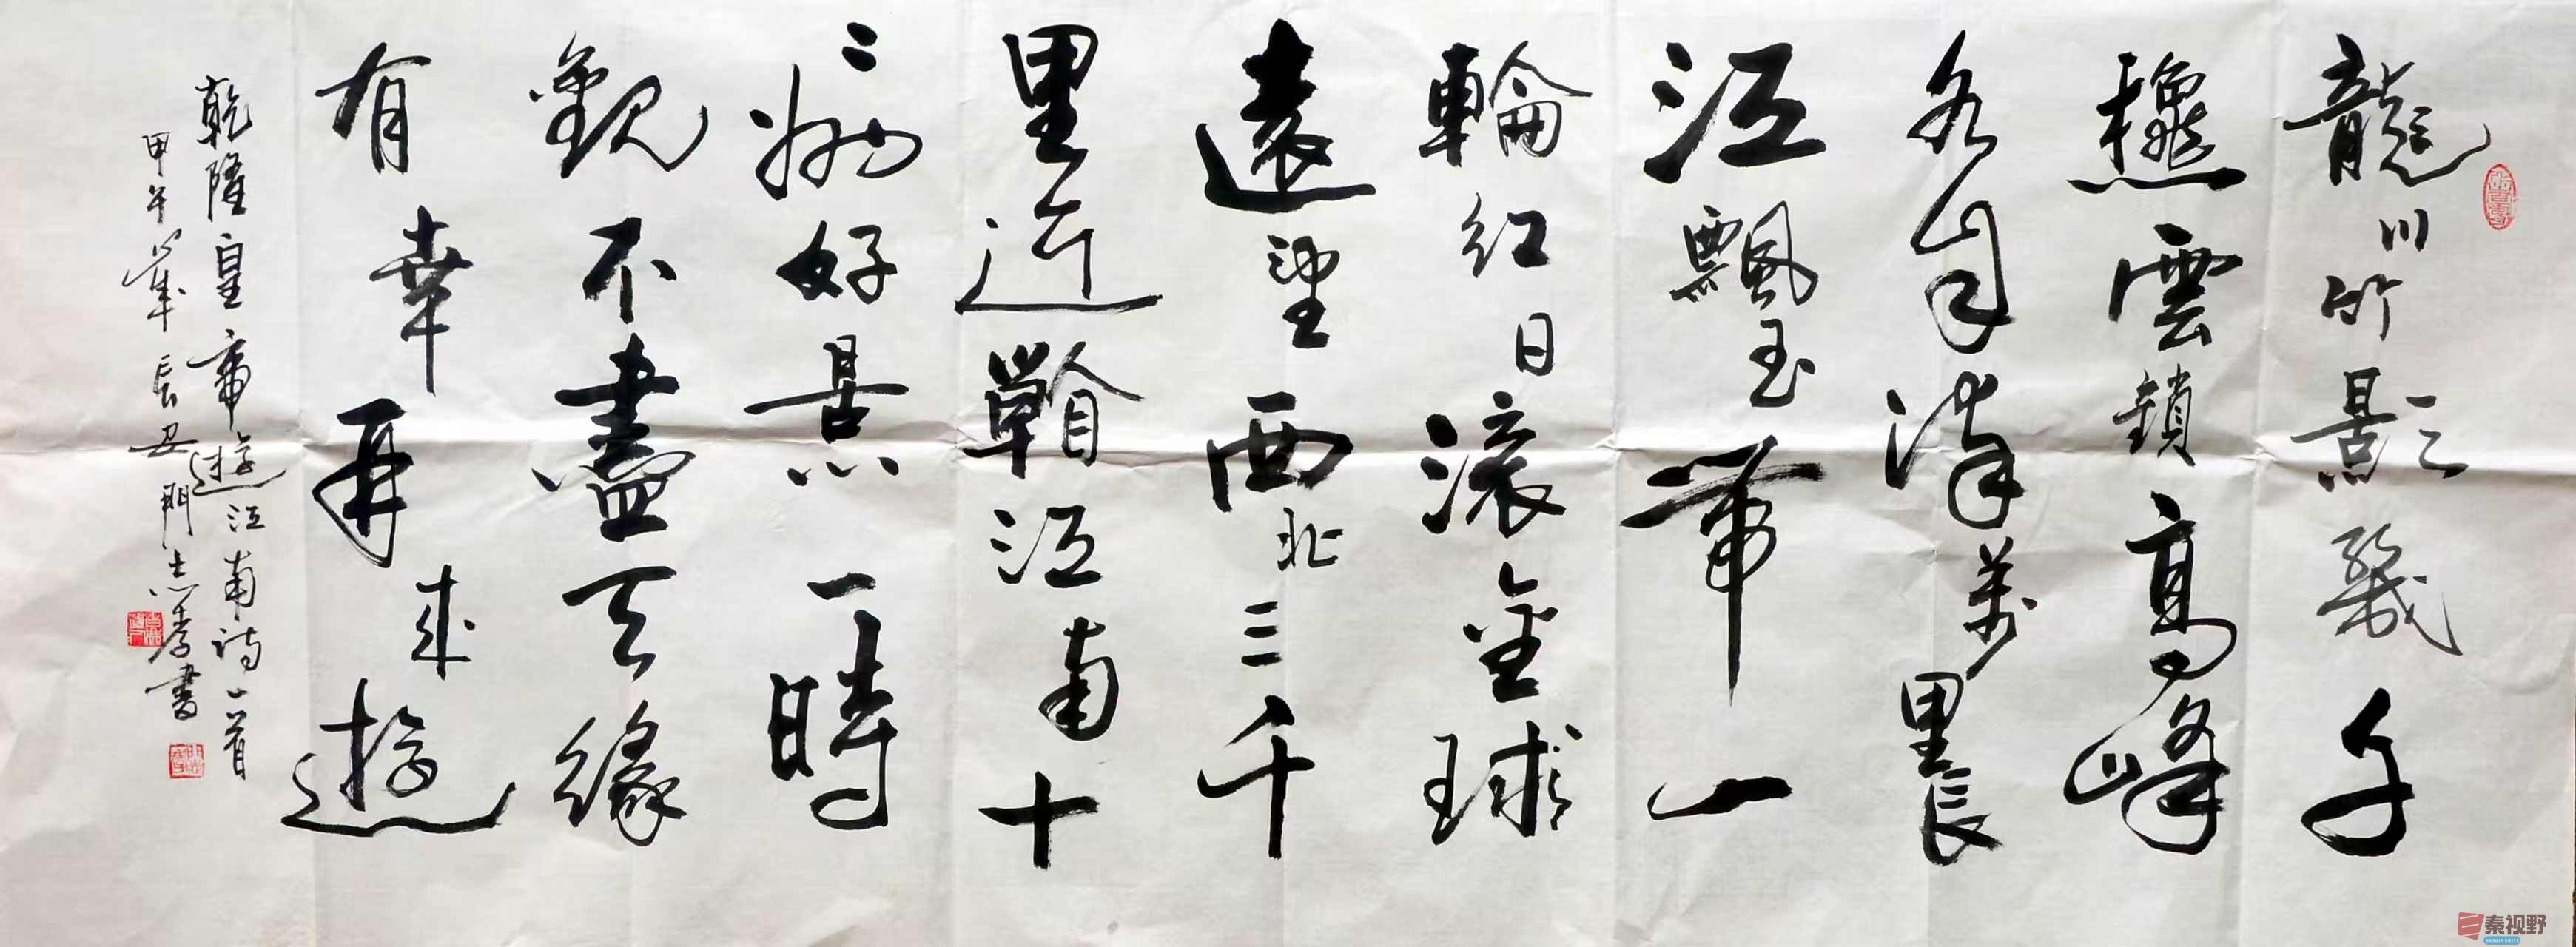 龍川竹影幾千
穐雲鎖高峰
水自清萬里長
江飄玉帶一
輪紅日滾金球
遠望西北三千
里近觀江南十
二州好景一時
觀不盡天緣
有幸再來遊
乾隆皇帝遊江南詩一首
甲午年 長安 門志孝書
秦视野